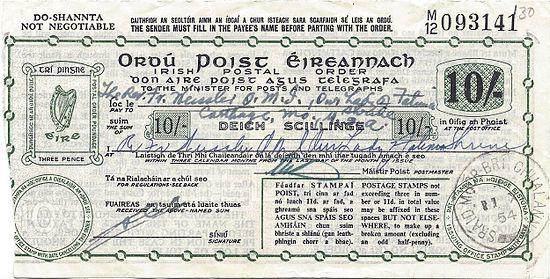 DO-SHANNTA
NOT NEGOTIABLE
CAITHFIDH AN SEOLTÓIR AINM AN ÍOCAÍ A CHUR ISTEACH SARA SGARFAIDH SÉ LEIS AN ORDÚ.
THE SENDER MUST FILL IN THE PAYEE'S NAME BEFORE PARTING WITH THE ORDER.
M/12 093141
130
Ordú Poist Éireannach
IRISH POSTAL ORDER
don aire poist agus telegrafa
TO THE MINISTER FOR POSTS AND TELEGRAPHS
trí pingne
éire
THREE PENCE
10/-
íoc le
PAY TO
suim
THE SUM OF
Fr.
O.M.I. Our Lady of Fatima
Carthage, Mo.
10/-
DEICH SCILLINGS
10/-
in Oifig an Phoist
AT THE POST OFFICE
at
Fr
O M I Our Lady Fatima Shrine
Laistigh de Thrí Mhí Chailendair ón lá deiridh den mhí thar tugadh amach é seo
WITHIN THREE CALENDAR MONTHS FROM THE LAST DAY OF THE MONTH OF ISSUE
Máistir Poist POSTMASTER
Tá na Rialacháin ar a chúl seo
FOR REGULATIONS-SEE BACK
FUAIREAS an tsuim atá luaite thuas
RECEIVED THE ABOVE-NAMED SUM
SÍNIÚ
SIGNATURE
Féadfar STAMPAÍ
POIST, trí cinn ar fad
nó luach 11d. ar fad, do
ghreamú sna spáis seo
AGUS SNA SPÁIS SEO
AMHÁIN chum suim
bhriste a shlánú (gan leath-
phingin chorr a bhac).
POSTAGE STAMPS not
exceeding three in num-
ber or 11d. in total value
may be affixed in these
spaces BUT NOT ELSE-
WHERE, to make up a
broken amount (excluding
an odd half-penny).
54
ISSUING OFFICE STAMP